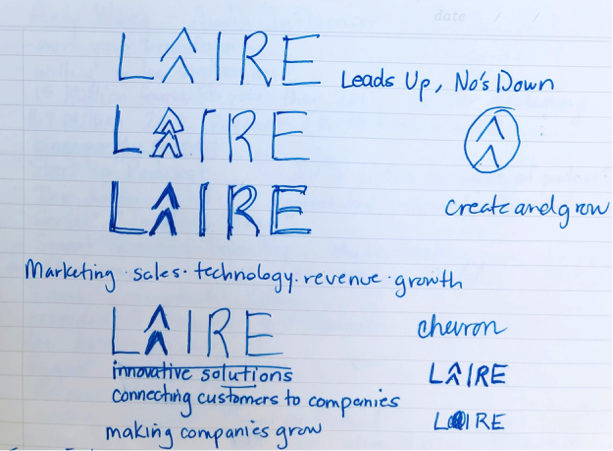 date / /
LAIRE
Leads Up, No's Down
LAIRE
LAIRE
create and grow
Marketing · sales · technology · revenue · growth
LAIRE
chevron
innovative solutions
LAIRE
connecting customers to companies
LAIRE
making companies grow